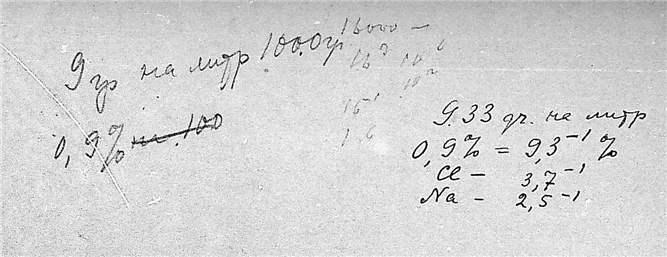 9 гр на литр 1000 гр 16000 —
0,9% на 100
16
9.33 гр. на литр
0,9% = 9,3⁻¹ %
Cl — 3,7⁻¹
Na — 2,5⁻¹